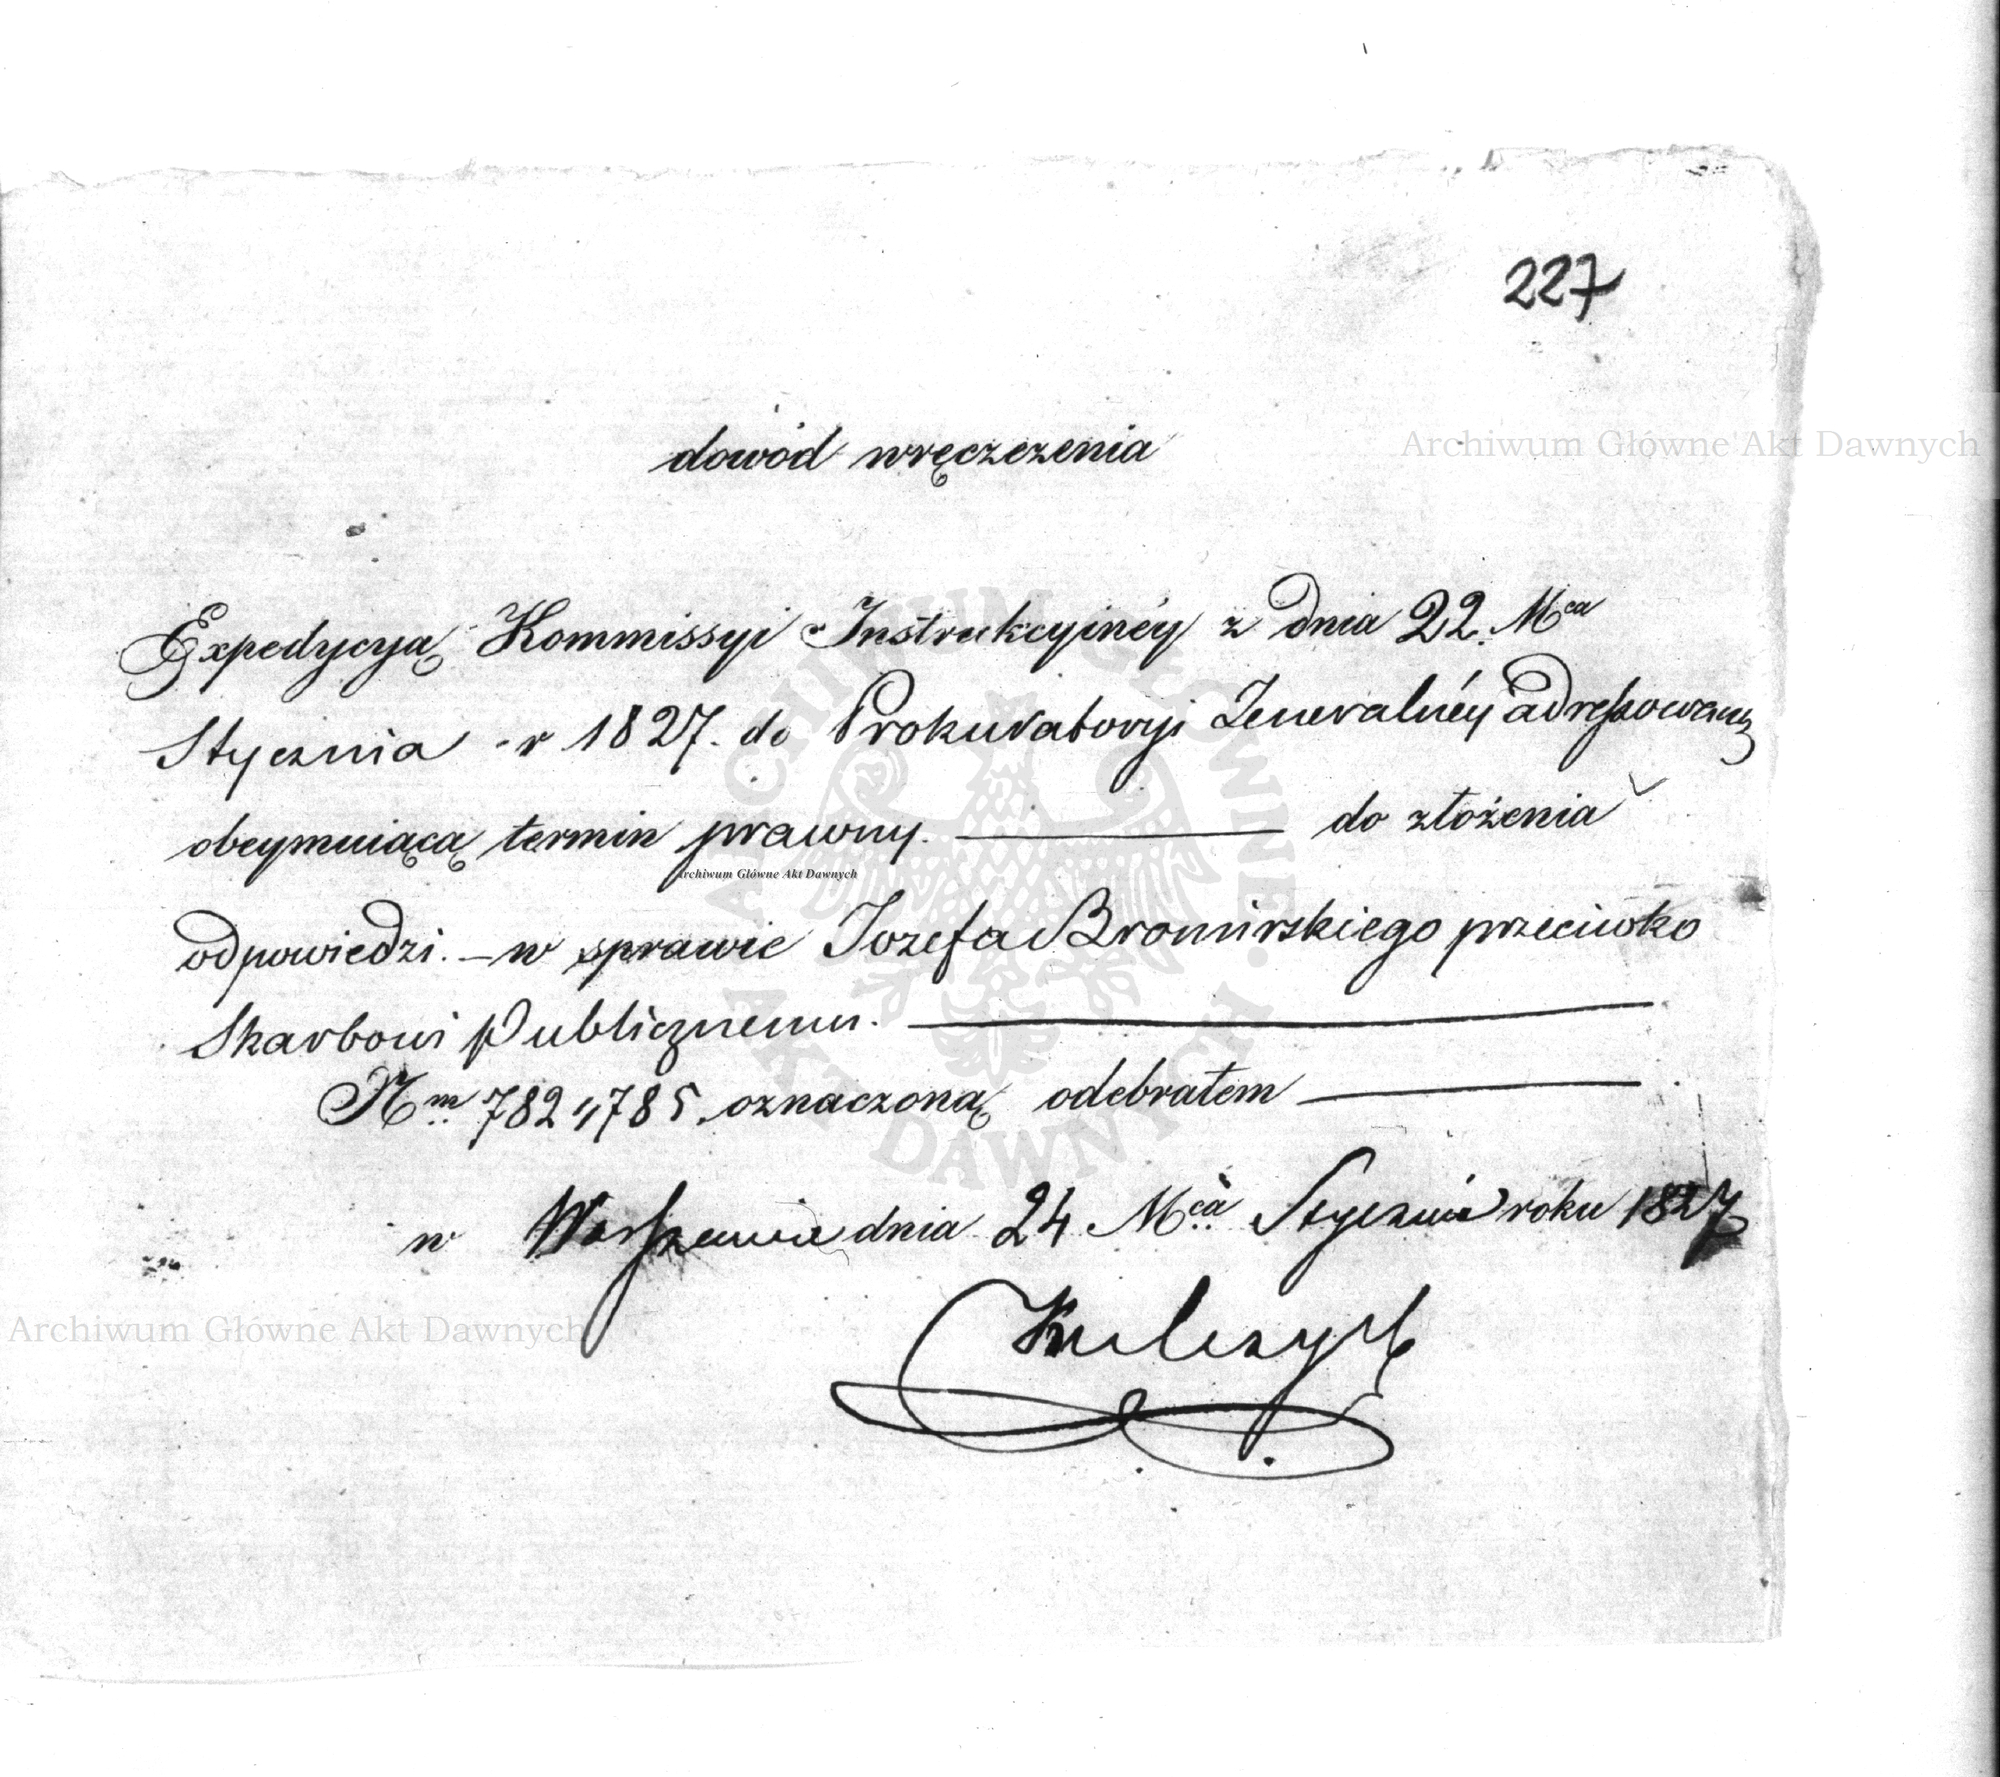 227
dowód wręczenia
Archiwum Główne Akt Dawnych
Expedycyą Kommissyi Instrukcyinéy z dnia 22. Mca
Stycznia r 1827. do Prokuratoryi Jeneralnéy adressowaną
obeymuiącą termin prawny. ——— do złożenia
Archiwum Główne Akt Dawnych
odpowiedzi. — w sprawie Jozefa Bromirskiego przeciwko
Skarbowi Publicznemu. ———
Nrm 782/785. oznaczoną odebrałem ———
w Warszawie dnia 24 Mca Stycznia roku 1827
Archiwum Główne Akt Dawnych
ARCHIWUM GŁÓWNE AKT DAWNYCH